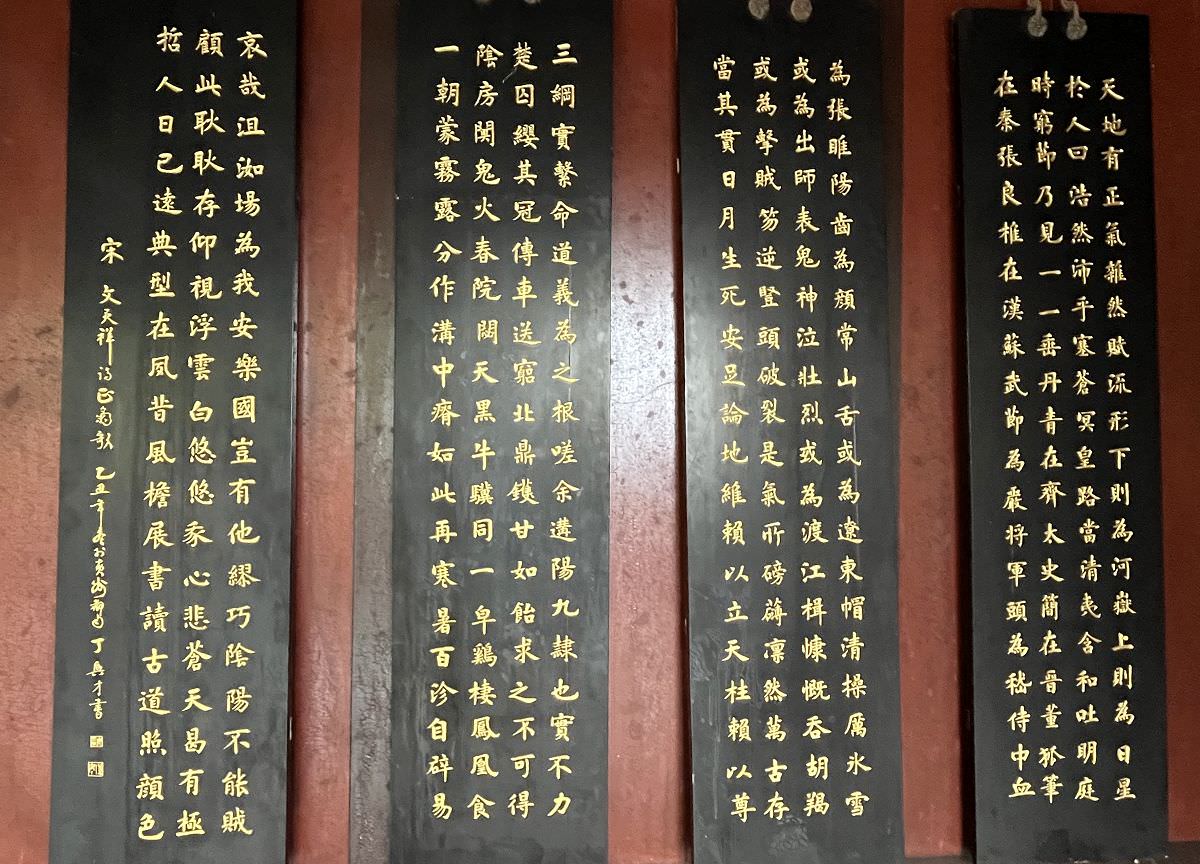 天地有正氣雜然賦流形下則為河嶽上則為日星
於人曰浩然沛乎塞蒼冥皇路當清夷含和吐明庭
時窮節乃見一一垂丹青在齊太史簡在晉董狐筆
在秦張良椎在漢蘇武節為嚴將軍頭為嵇侍中血
為張睢陽齒為顏常山舌或為遼東帽清操厲冰雪
或為出師表鬼神泣壯烈或為渡江楫慷慨吞胡羯
或為擊賊笏逆豎頭破裂是氣所磅礴凜然萬古存
當其貫日月生死安足論地維賴以立天柱賴以尊
三綱實繫命道義為之根嗟余遘陽九隸也實不力
楚囚纓其冠傳車送窮北鼎鑊甘如飴求之不可得
陰房闃鬼火春院閟天黑牛驥同一皁鷄棲鳳凰食
一朝蒙霧露分作溝中瘠如此再寒暑百沴自辟易
哀哉沮洳場為我安樂國豈有他繆巧陰陽不能賊
顧此耿耿存仰視浮雲白悠悠我心悲蒼天曷有極
哲人日已遠典型在夙昔風檐展書讀古道照顏色
宋 文天祥詩正氣歌 乙丑年 丁 才書